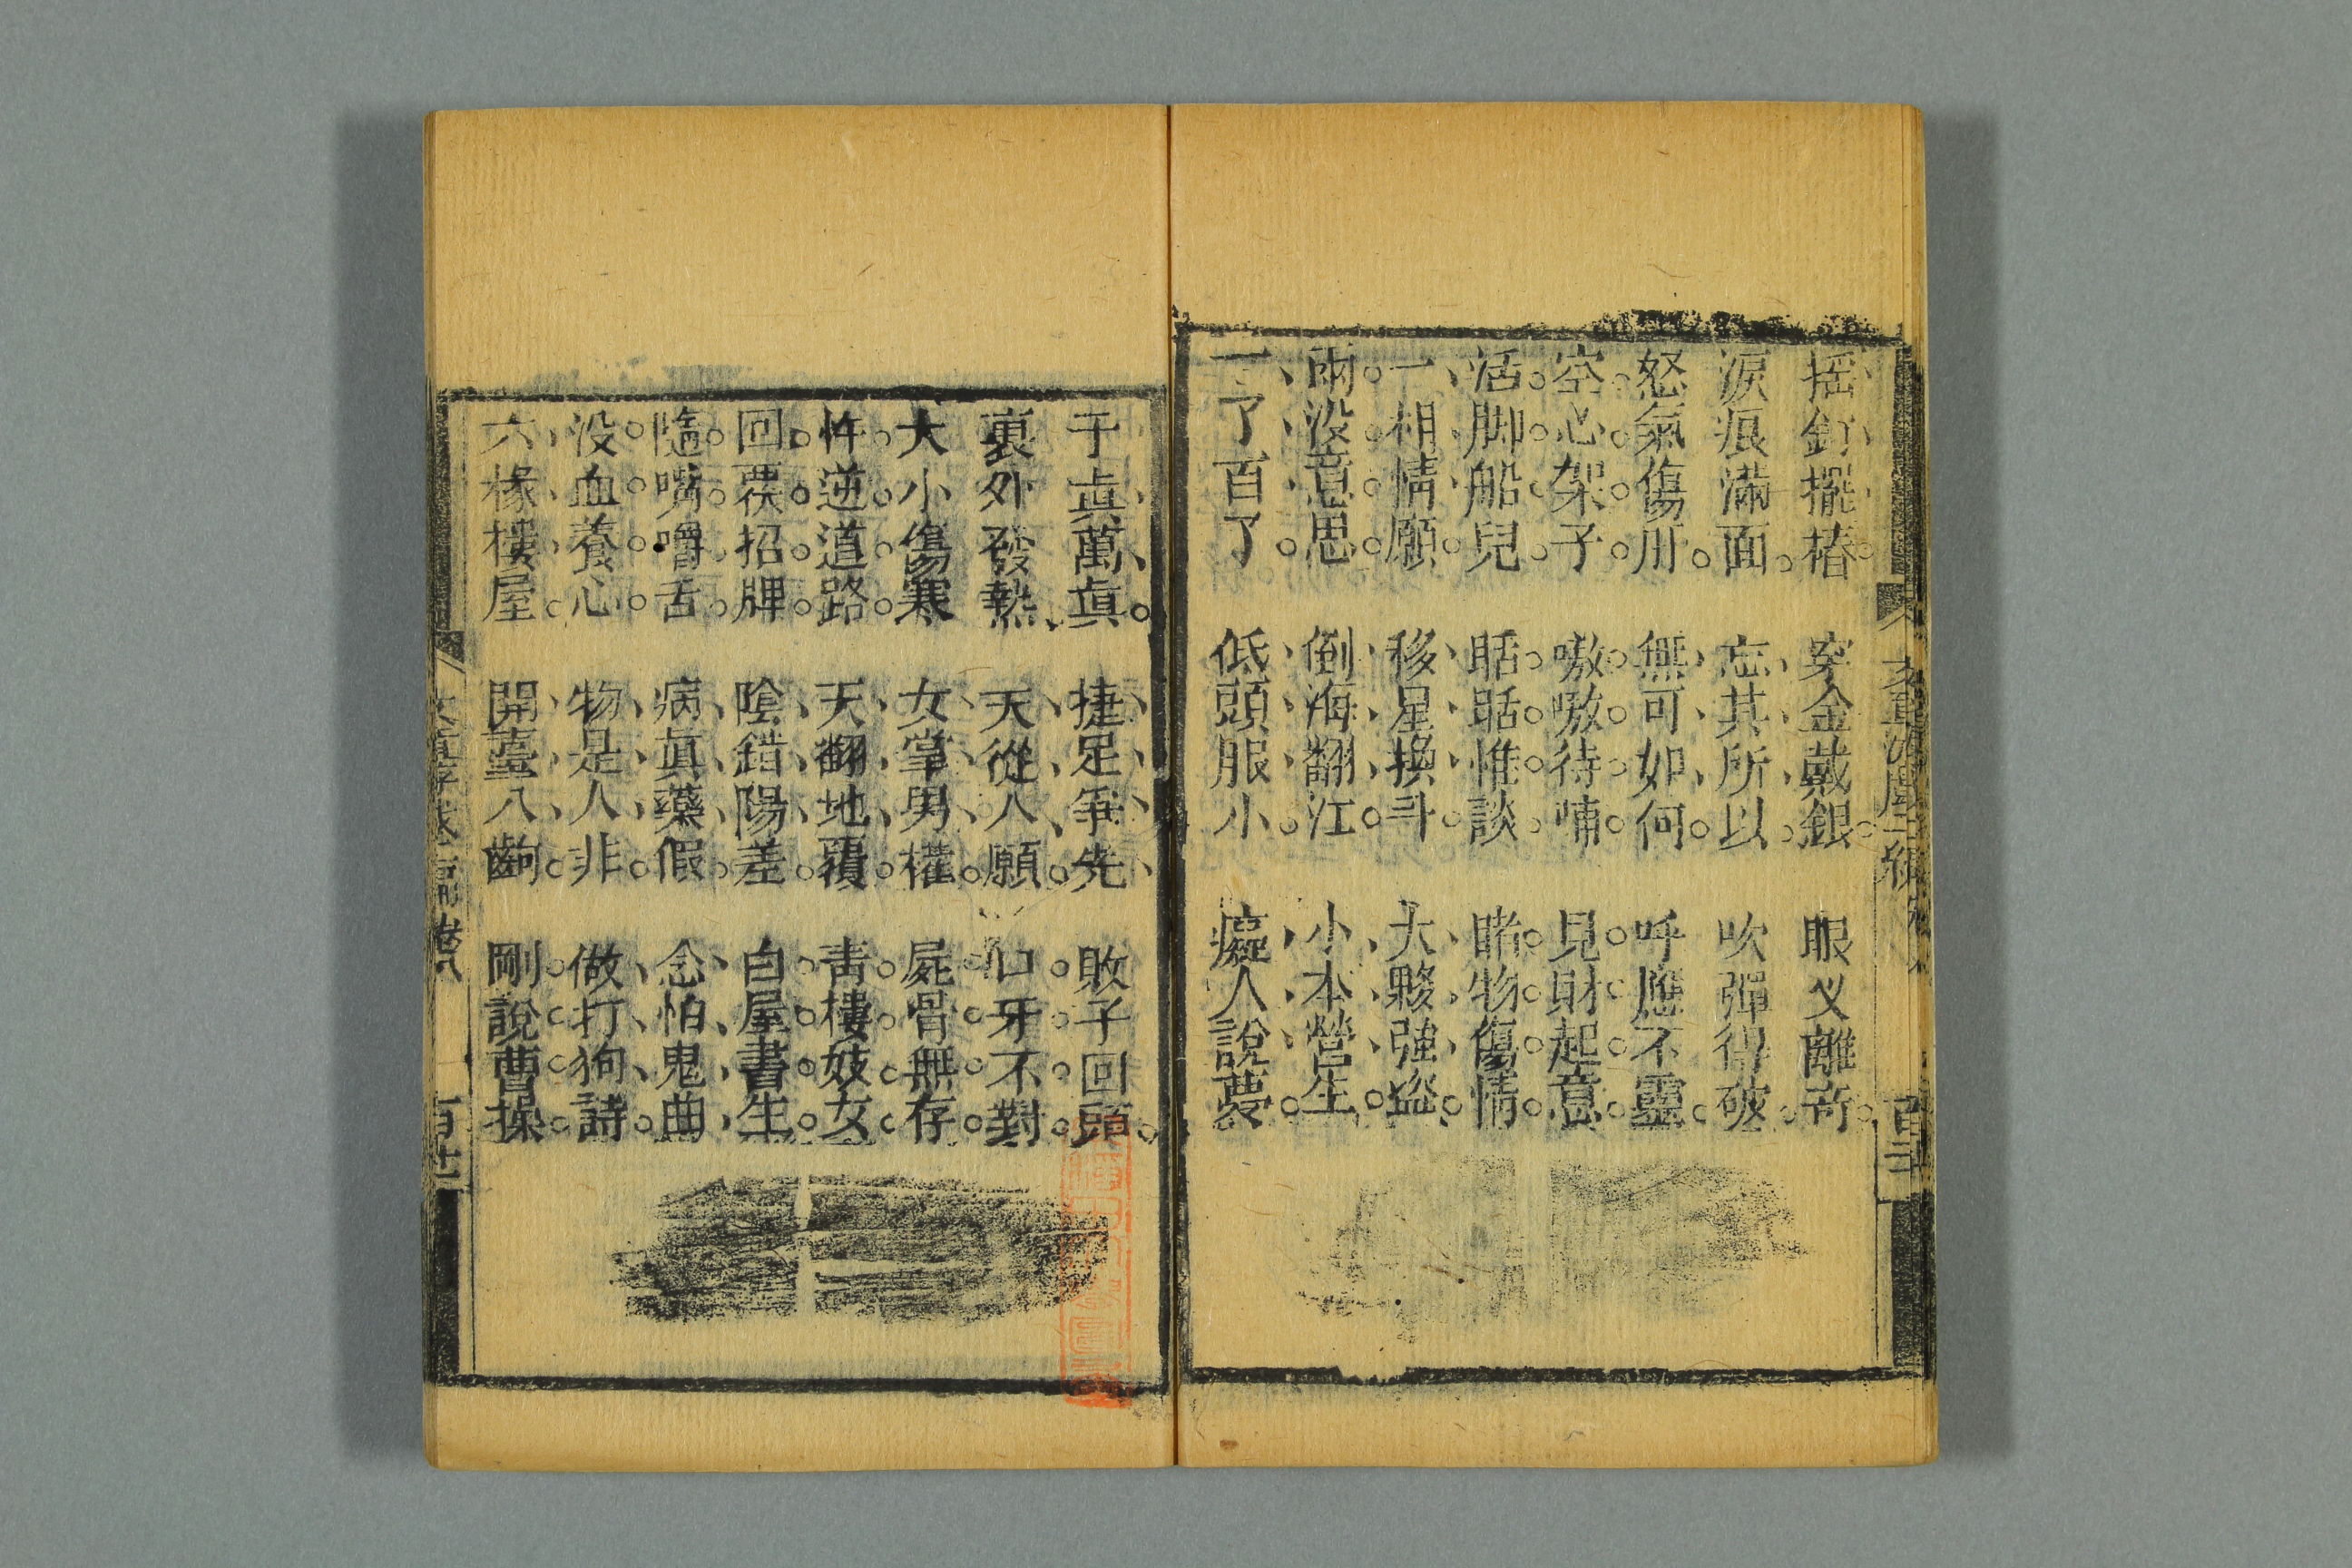 搖釘擺樁　穿金戴銀　眼义離奇
淚痕滿面　忘其所以　吹彈得破
怒氣傷肝　無可如何　呼應不靈
空心架子　嗷嗷待哺　見財起意
活脚船兒　聒聒惟談　睹物傷情
一相情願　移星換斗　大夥強盗
兩没意思　倒海翻江　小本營生
一了百了　低頭服小　癡人說夢
千真萬真　捷足爭先　敗子回頭
裏外發熱　天從人願　口牙不對
大小傷寒　女掌男權　屍骨無存
忤逆道路　天翻地覆　靑樓妓女
回覆招牌　陰錯陽差　白屋書生
隨嘴嚼舌　病真藥假　念怕鬼曲
没血養心　物是人非　做打狗詩
六椽樓屋　開臺八齣　剛說曹操